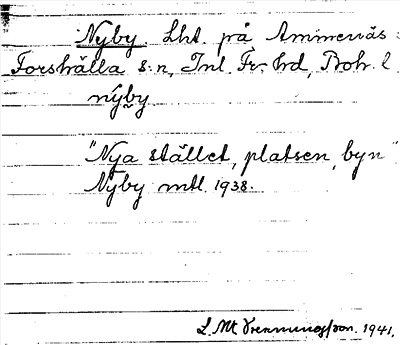 Nyby Lht. på Ammenäs
Forshälla s:n, Inl. Fr. hd, Boh. l.
nýby
"Nya stället, platsen, byn"
Nyby mtl. 1938.
L. M. 1941.